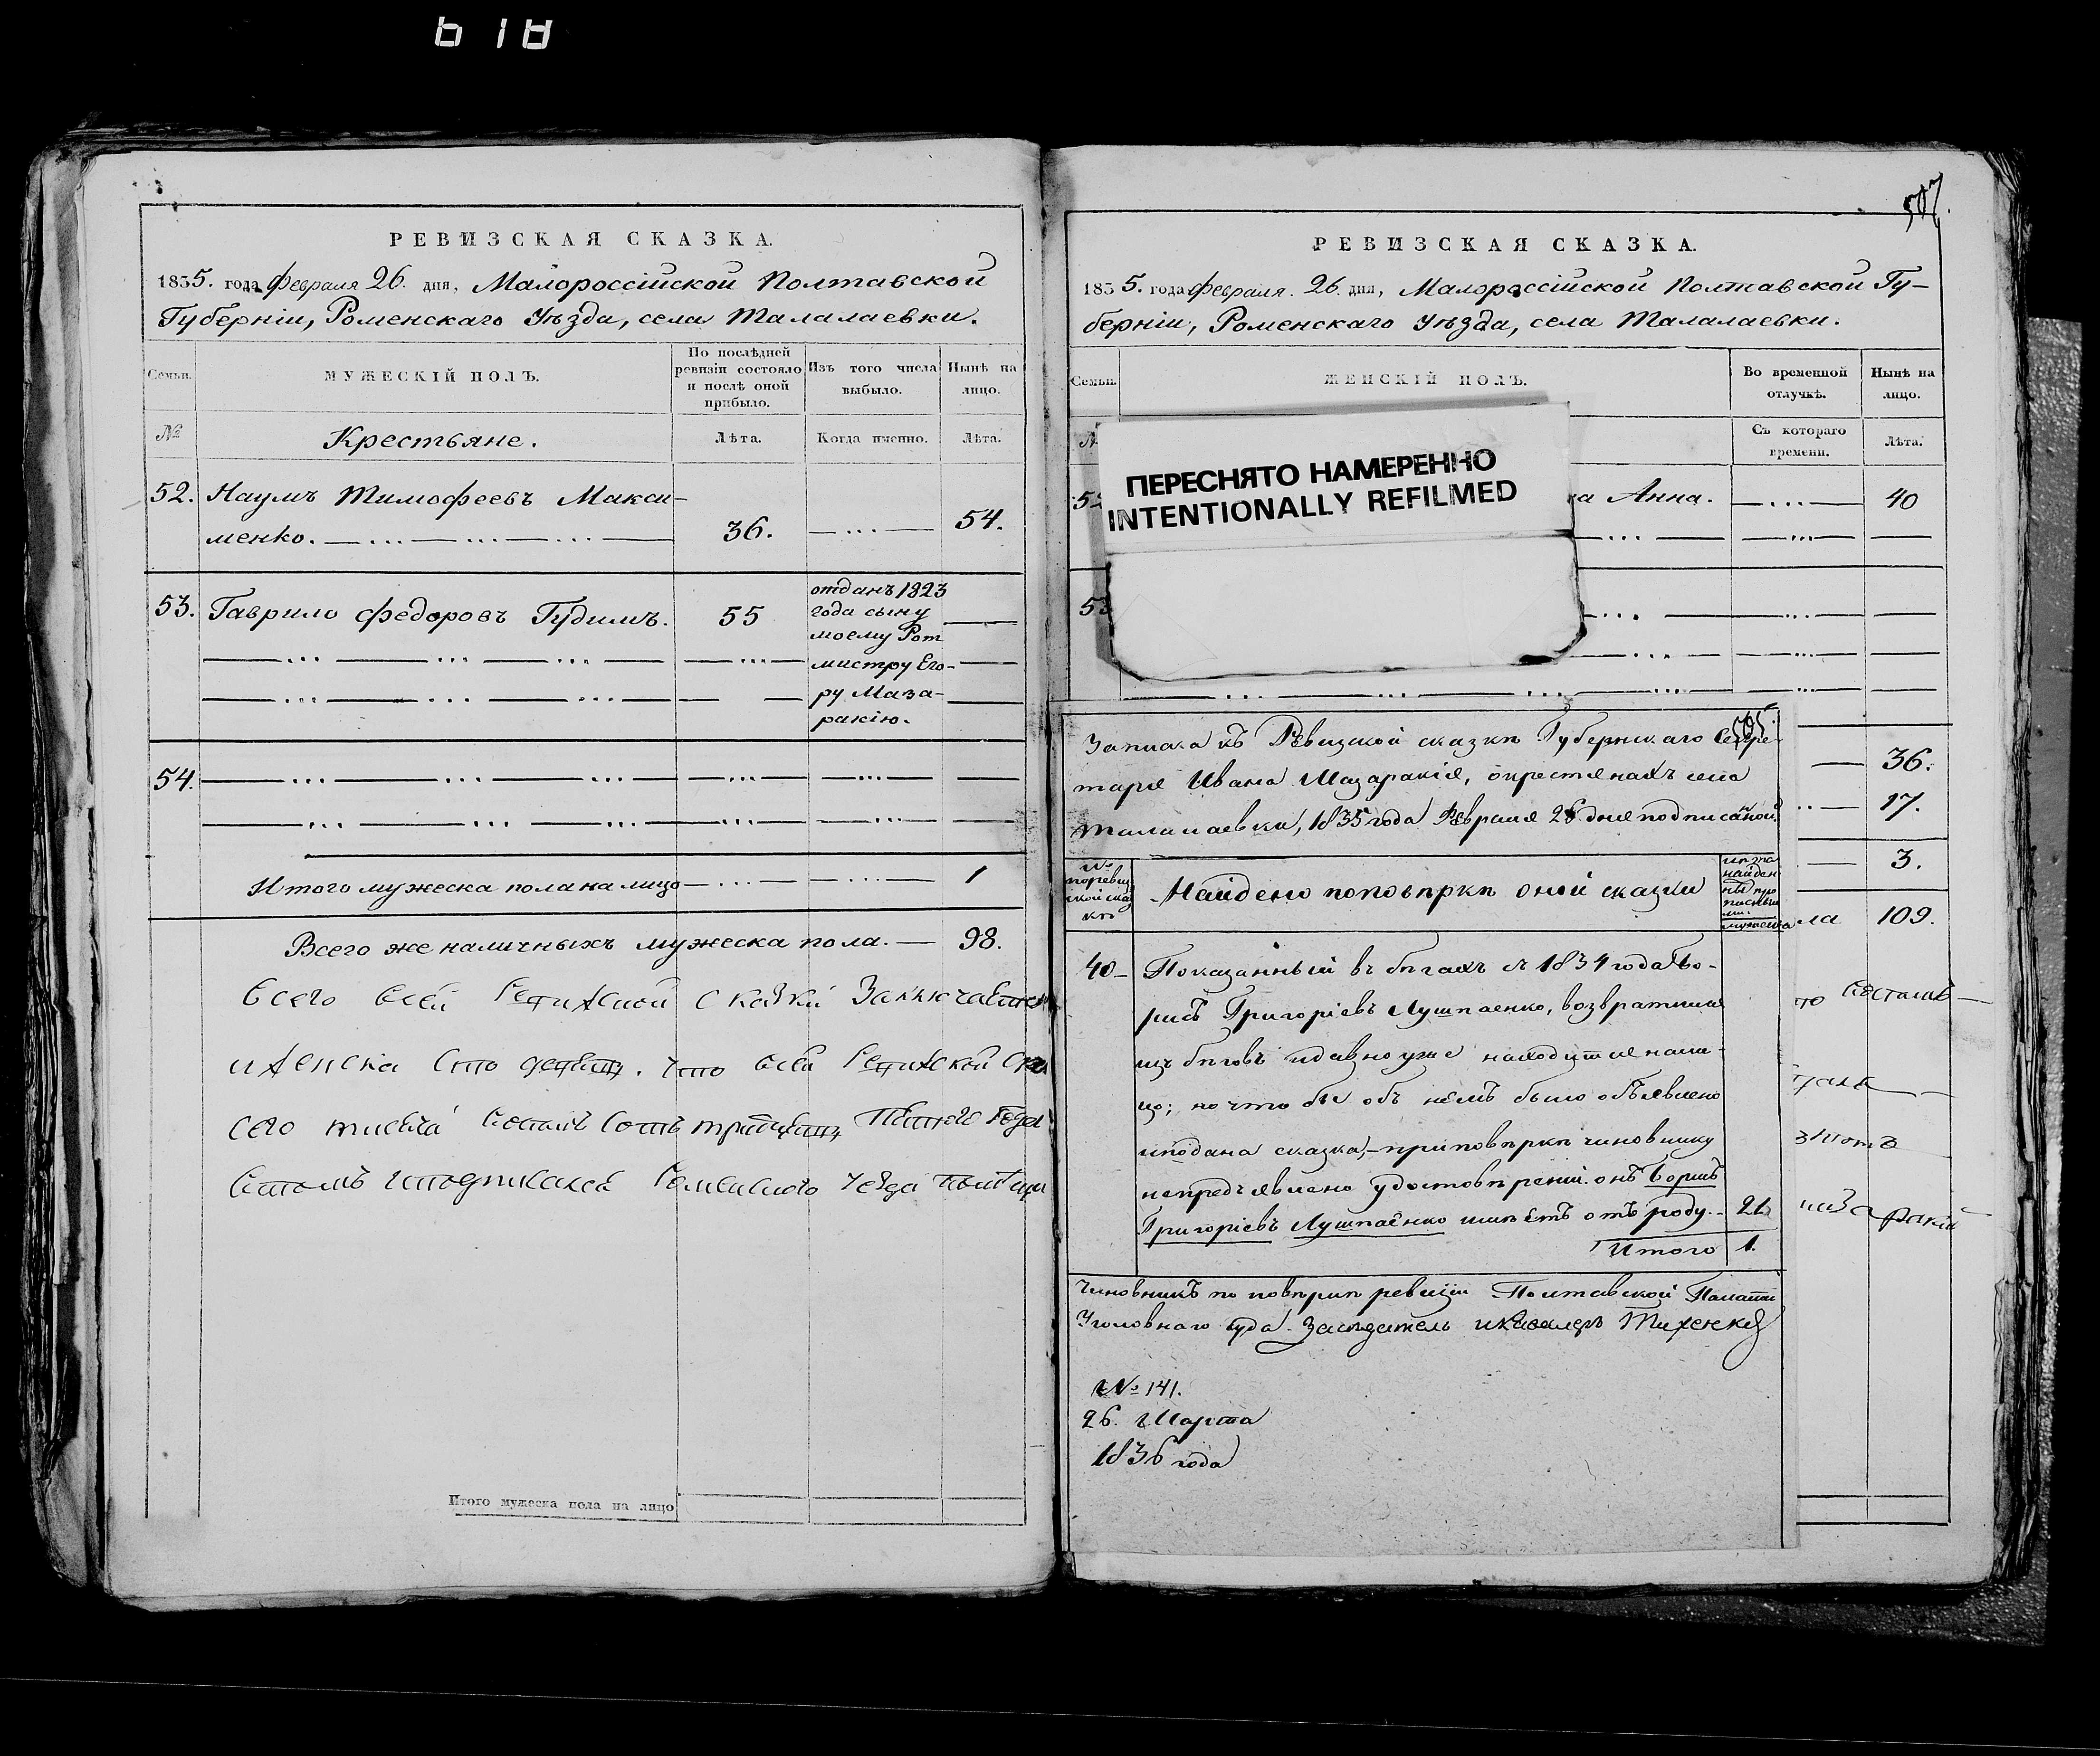 618
РЕВИЗСКАЯ СКАЗКА.
1835. года Февраля 26. дня, Малороссійской Полтавской
Губерніи, Роменскаго Уѣзда, села Талалаевки.
Семьи.
МУЖЕСКІЙ ПОЛЪ.
По послѣдней ревизіи состояло и послѣ оной прибыло.
Изъ того числа выбыло.
Нынѣ на лицо.
№
Крестьяне.
Лѣта.
Когда именно.
Лѣта.
52. Наумъ Тимофеевъ Макси-
менко. 36. 54.
53. Гаврило Федоровъ Гудимъ. 55
отданъ 1823
года сыну
моему Рот
мистру Его-
ру Маза-
ракію.
54.
Итого мужеска пола на лицо 1
Всего же наличныхъ мужеска пола. — 98.
всего всей сказки
женска сто
сего тысяча года
Роменского
Итого мужеска пола на лицо
507.
РЕВИЗСКАЯ СКАЗКА.
1835. года Февраля. 26. дня, Малороссійской Полтавской Гу-
берніи, Роменскаго Уѣзда, села Талалаевки.
Семьи.
ЖЕНСКІЙ ПОЛЪ.
Во временной отлучкѣ.
Нынѣ на лицо.
Съ котораго времени.
Лѣта.
ПЕРЕСНЯТО НАМЕРЕННО
INTENTIONALLY REFILMED
на Анна. 40
36.
17.
3.
ла 109.
Записка къ Ревизской сказкѣ Губернскаго Секре-
таря Ивана Мазаракія, о крестьянахъ села
Талалаевки, 1835 года Февраля 26 дня подписаной.
№ по ревиз
ской сказ
кѣ
Найдено по повѣркѣ оной сказки
мужеска
40 Показанный въ бѣгахъ съ 1834 года Бо-
рисъ Григоріевъ Лушпаенко, возвратился
изъ бѣговъ и давно уже находится на ли-
цо; но что бы объ немъ было объявлено
и подана сказка,- при повѣркѣ чиновнику
непредъявлено удостовѣреній. онъ Борисъ
Григоріевъ Лушпаенко имѣетъ отъ роду. 21
Итого 1.
Чиновникъ по повѣркѣ ревизіи Полтавской Палаты
Уголовнаго Суда Засѣдатель и кавалеръ
№ 141.
26. Марта
1836 года